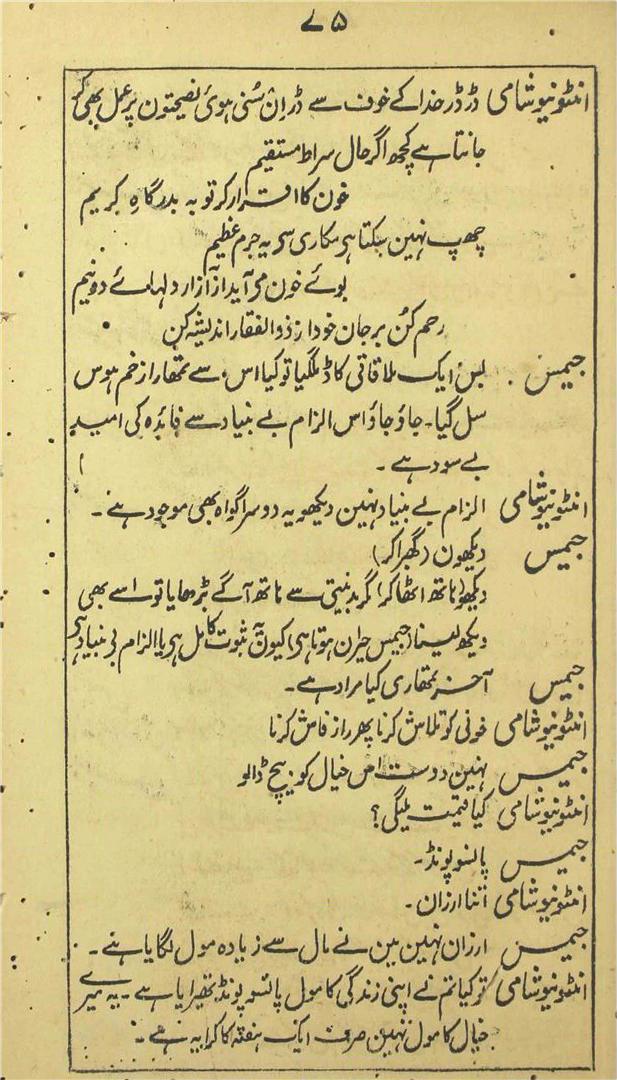 ۷۵
انٹونیو شامی ڈر ڈر خدا کے خوف سے ڈر ان سُنی ہوئی نصیحتون پر عمل بھی کر
جانتا ہے کچھ اگر حال سراط مستقیم
خون کا اقرار کر توبہ بدرگاہِ کریم
چھپ نہین سکتا ہی مکاری سی یہ جرم عظیم
بوئے خون می آید از آزار دلہائے دونیم
رحم کُن بر جان خود از ذوالفقار اندیشہ کن
جیمس بس ایک ملاقاتی کاڈ ملگیا تو کیا اس سے تمھارا زخم ہوس
سل گیا۔ جاؤ جاؤ اس الزام بے بنیاد سے فائدہ کی امید
بے سود ہے ۔
انٹونیو شامی الزام بے بنیاد نہین دیکھو یہ دوسرا گواہ بھی موجود ہے ۔
جیمس دیکھون (گھبرا کر)
دیکھو (ہاتھ اٹھا کر) اگر بدنیتی سے ہاتھ آگے بڑھایا تو اسے بھی
دیکھ لینا (جیمس حیران ہوتا ہی) کیون یہ ثبوت کامل ہی یا الزام بی بنیاد ہی
جیمس آخر تمھاری کیا مراد ہے ۔
انٹونیو شامی خونی کو تلاش کرنا پھر راز فاش کرنا
جیمس نہین دوست اس خیال کو بیچ ڈالو
انٹونیو شامی کیا قیمت ملیگی ؟
جیمس پانسو پونڈ ۔
انٹونیو شامی اتنا ارزان ۔
جیمس ارزان نہین مین نے مال سے زیادہ مول لگایا ہے ۔
انٹونیو شامی تو کیا تم نے اپنی زندگی کا مول پانسو پونڈ ٹھیرایا ہے ۔ یہ میرے
خیال کا مول نہین صرف ایک ہفتہ کا کرایہ ہے ۔